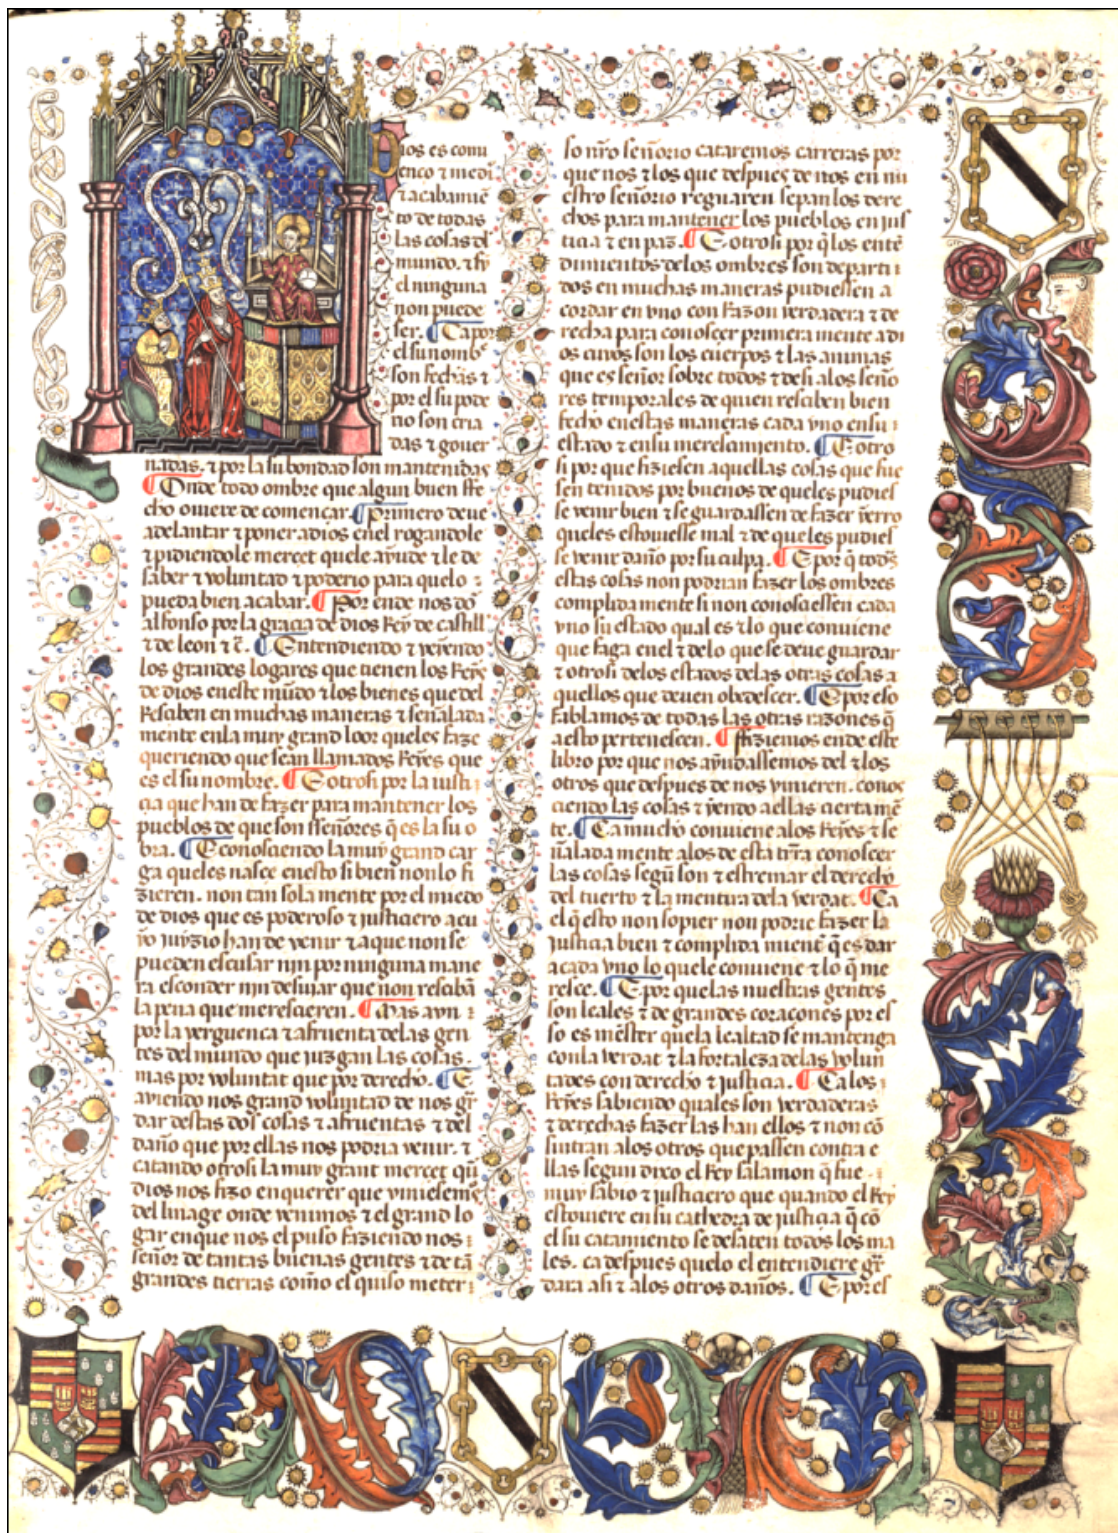 Dios es comi
enço τ medi
τ acabamie
to de todas
las cosas dl
mundo. τ sy
el ninguna
non puede
ser. Ca por
el su nomb
son fechas τ
por el su pode
rio son cria
das τ gouer
nadas. τ por la su bondad son mantenidas
Onde todo ombre que algun buen ffe
cho ouiere de començar. Primero deue
adelantar τ poner a dios enel rogandole
τ pidiendole merçet quele ayude τ le de
saber τ voluntad τ poderio para quelo
pueda bien acabar. Por ende nos dõ
alfonso por la graçia de dios Rey de castill
τ de leon τ c̃. Entendiendo τ veyendo
los grandes logares que tienen los Reyes
de dios en este mũdo τ los bienes que del
Resçiben en muchas maneras τ señalada
mente enla muy grand loor queles faze
queriendo que sean llamados Reyes que
es el su nombre. E otrosi por la iusti
çia que han de fazer para mantener los
pueblos de que son sseñores q̃ es la su o
bra. E conosçiendo la muy grand car
ga queles nasçe enesto si bien non lo fi
zieren. non tan sola mente por el miedo
de dios que es poderoso τ justiçiero a cu
yo iuyzio han de venir τ a que non se
pueden escusar nin por ninguna mane
ra esconder nin desuiar que non resçibã
la pena que meresçieren. Mas avn
por la verguença τ afruenta delas gen
tes del mundo que iuzgan las cosas.
mas por voluntat que por derecho. E
aviendo nos grand voluntad de nos gr̃
dar destas dos cosas τ afruentas τ del
daño que por ellas nos podria venir. τ
catando otrosi la muy grant merçet qũ
dios nos fizo en querer que viniesemos
del linage onde venimos τ el grand lo
gar en que nos el puso faziendo nos
señor de tantas buenas gentes τ de tã
grandes tierras como el quiso meter
so nr̃o señorio cataremos carreras por
que nos τ los que despues de nos en nu
estro señorio regnaren sepan los dere
chos para mantener los pueblos en jus
tiçia τ en paz. E otrosi por q̃ los entẽ
dimientos delos ombres son departi
dos en muchas maneras pudiessen a
cordar en vno con Razon verdadera τ de
recha para conosçer primera mente a di
os cuyos son los cuerpos τ las animas
que es señor sobre todos τ desi alos seño
res temporales de quien resçiben bien
fecho en estas maneras cada vno en su
estado τ en su meresçimiento. E otro
si por que fiziesen aquellas cosas que fue
sen tenidos por buenos de queles pudies
se venir bien τ se guardassen de fazer yerro
queles estouiesse mal τ de queles pudies
se venir daño por su culpa. E por q̃ todas
estas cosas non podrian fazer los ombres
complida mente si non conosçiessen cada
vno su estado qual es τ lo que conuiene
que faga enel τ delo que se deue guardar
τ otrosi delos estados delas otras cosas a
quellos que deuen obedesçer. E por eso
fablamos de todas las otras razones q̃
a esto pertenesçen. ffiziemos ende este
libro por que nos ayudassemos del τ los
otros que despues de nos vinieren. conos
çiendo las cosas τ yendo a ellas çierta mẽ
te. Ca mucho conuiene alos Reyes τ se
ñalada mente alos de esta trr̃a conosçer
las cosas segũ son τ estremar el derecho
del tuerto τ la mentira dela verdat. Ca
el q̃ esto non sopier non podrie fazer la
justiçia bien τ complida mient q̃ es dar
a cada vno lo quele conuiene τ lo q̃ me
resçe. E por quelas nuestras gentes
son leales τ de grandes coraçones por es
so es mẽster quela lealtad se mantenga
conla verdat τ la fortaleza delas volun
tades con derecho τ justiçia. Ca los
Reyes sabiendo quales son verdaderas
τ derechas fazer las han ellos τ non cõ
sintran alos otros que passen contra e
llas segun dixo el Rey salamon q̃ fue
muy sabio τ justiçiero que quando el Rey
estouiere en su cathedra de justiçia q̃ cõ
el su catamiento se desaten todos los ma
les. ca despues quelo el entendiere gr̃
dara asi τ alos otros daños. E por es